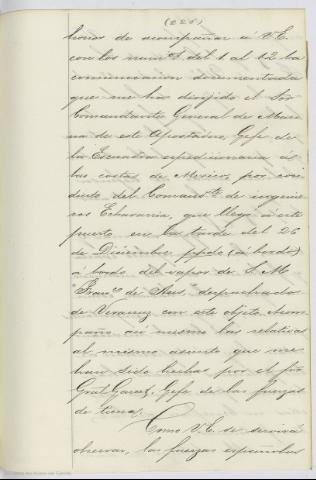 (226)
honor de acompañar á V.E.
con los num.s del 1 al 12 la
comunicacion documentada
que me ha dirijido el Sor
Comandante General de Mari
na de este Apostadero, Gefe de
la Escuadra espedicionaria á
las costas de Mexico, por con
ducto del Comand.te de ingenie
ros Echavarria, que llegó á este
puerto en la tarde del 26
de Diciembre ppdo (á bordo)
á bordo del vapor de S.M.
"Fran.co de Asis" despachado
de Veracruz con este objeto. Acom
paño asi mismo las relativas
al mismo asunto que me
han sido hechas por el Sor
Gral Gasset, Gefe de las fuerzas
de tierra.
Como V.E. se servirá
observar, las fuerzas españolas